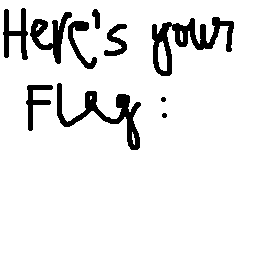 Here's your
Flag: